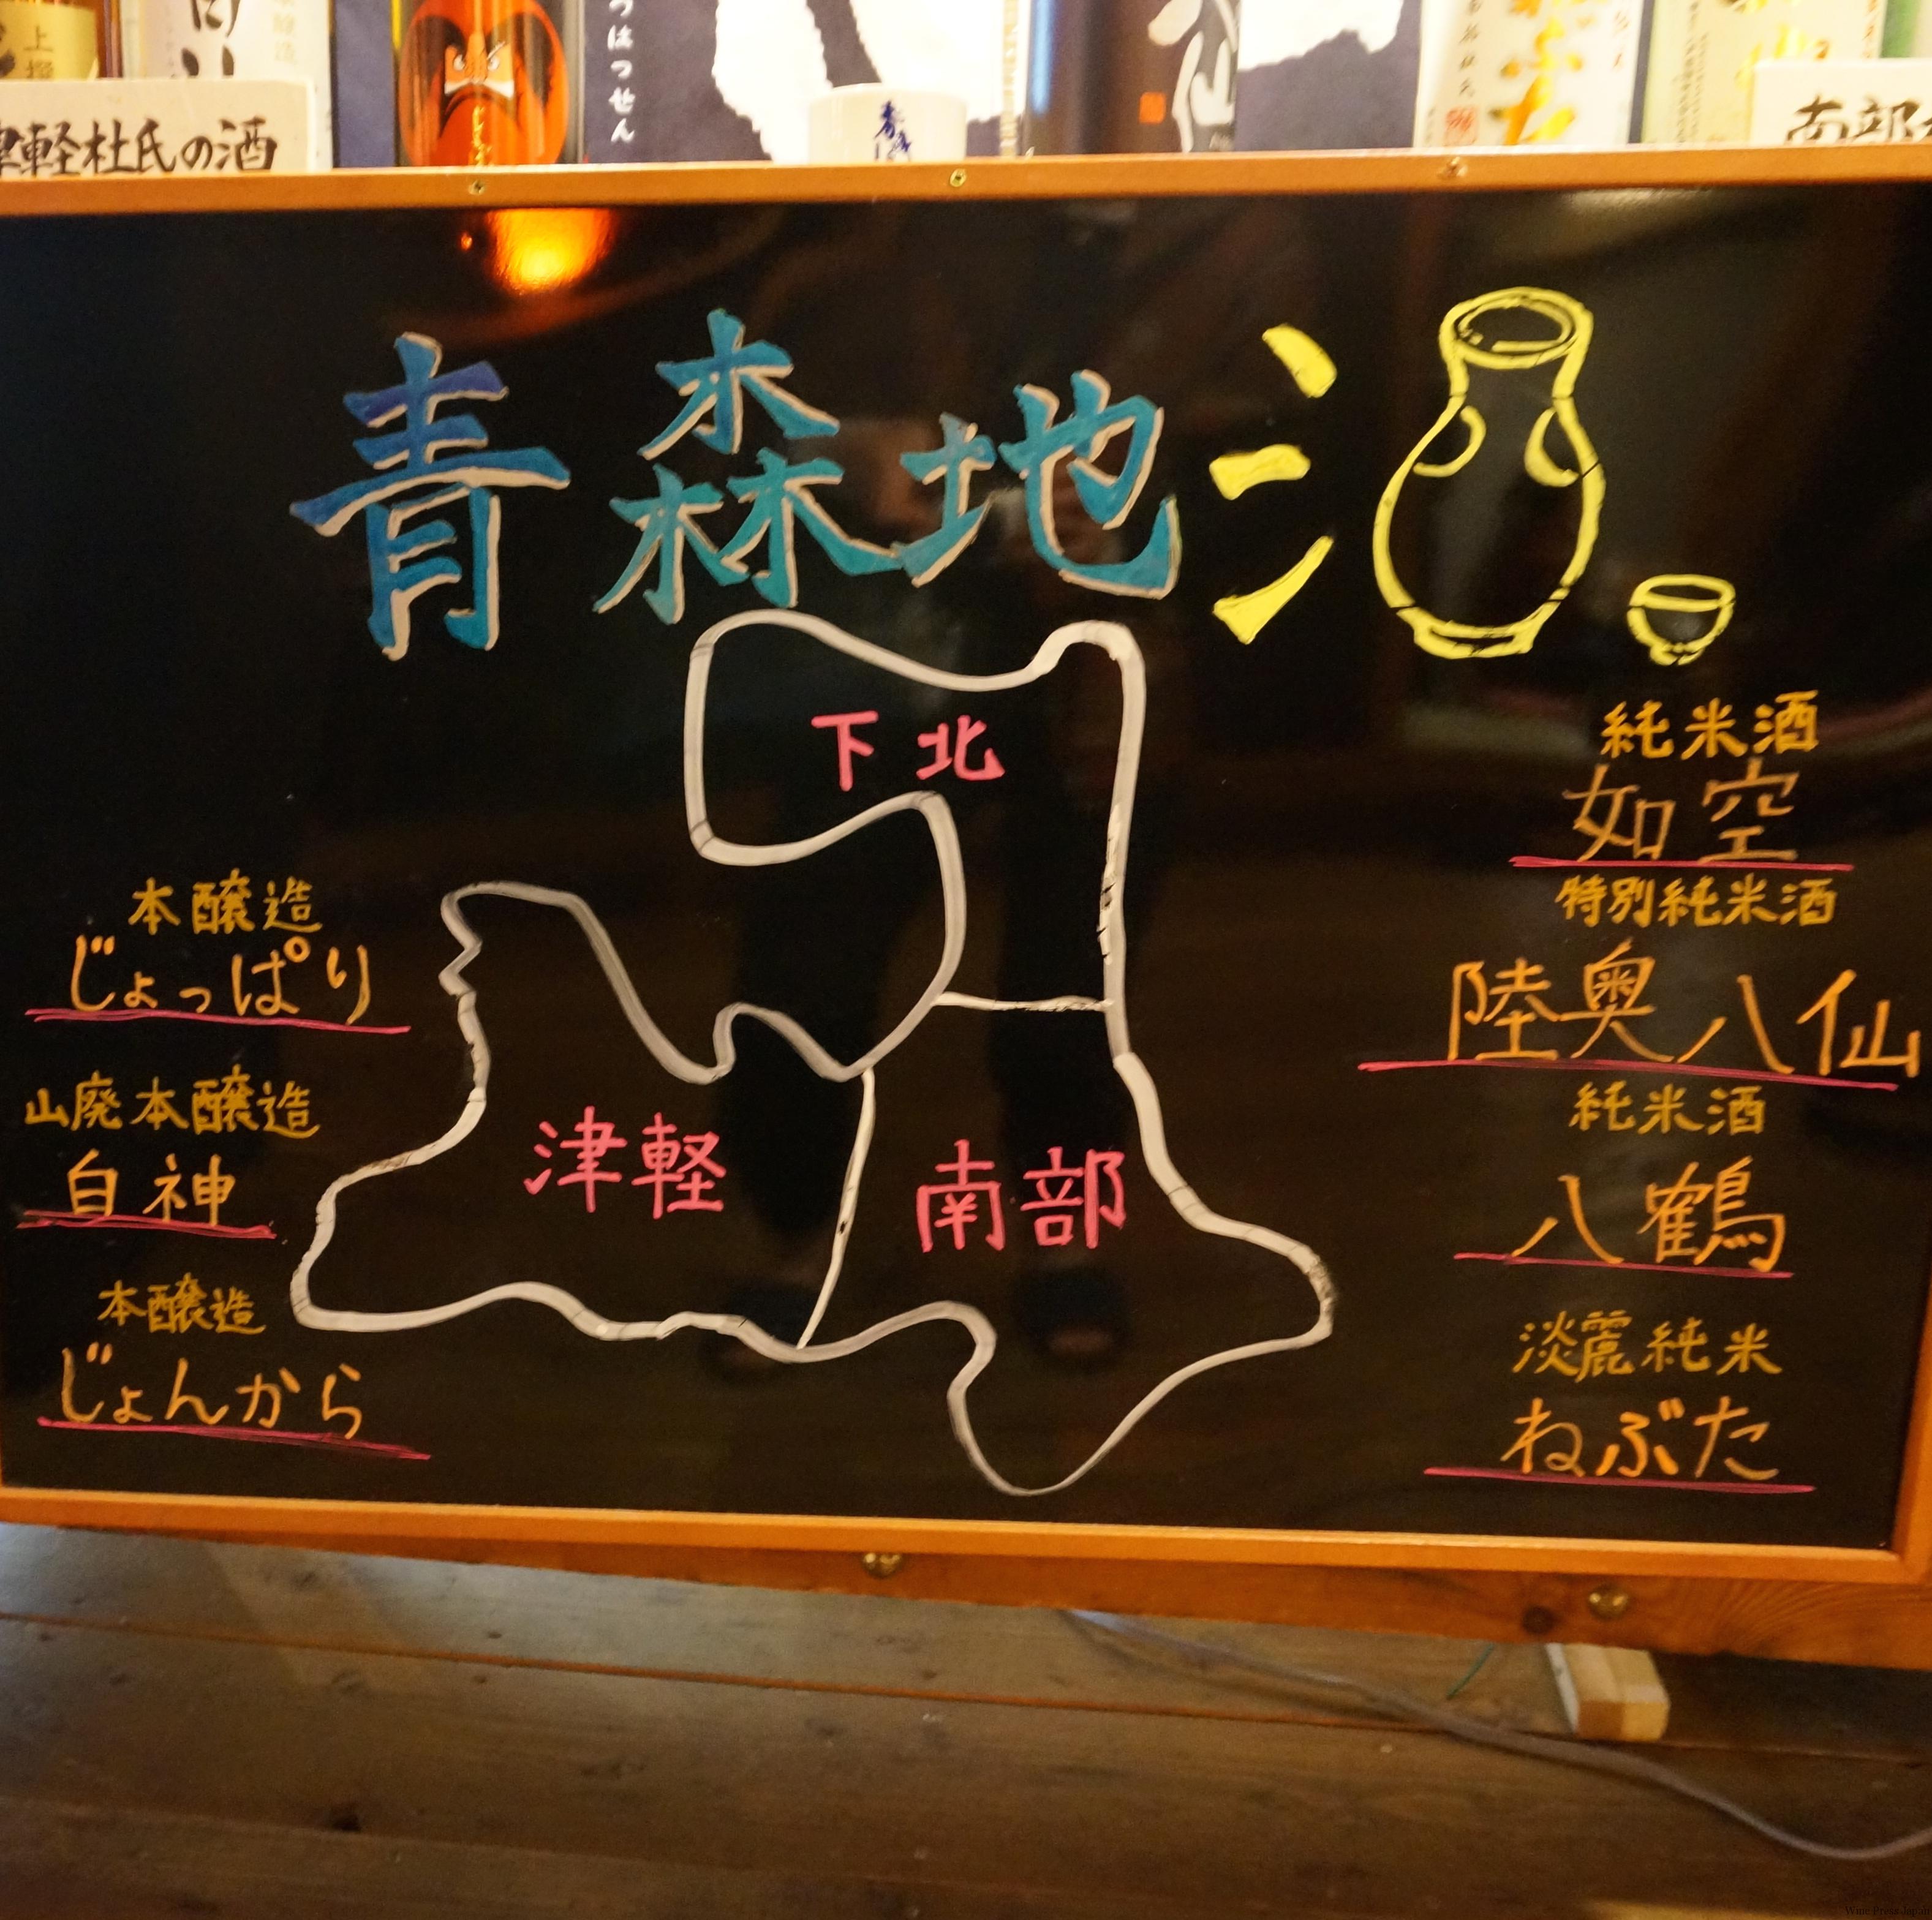 上撰
つはつせん
津軽杜氏の酒
ねぶた
南部
青森地酒
下北
津軽
南部
本醸造
じょっぱり
山廃本醸造
白神
本醸造
じょんから
純米酒
如空
特別純米酒
陸奥八仙
純米酒
八鶴
淡麗純米
ねぶた
Wine Press Japan